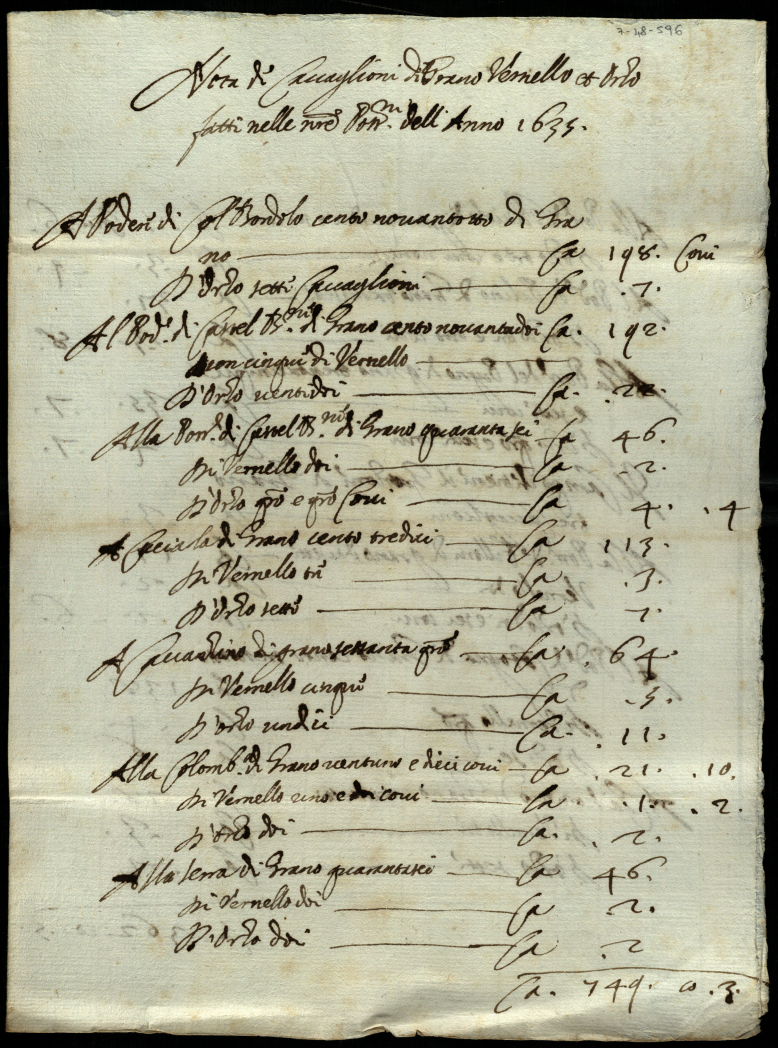 7-48-596
Nota di Cavaglioni di Grano Vernello et Orzo
fatti nelle nrẽ dell'Anno 1635.
A Poderi di Col Bordolo cento novantotto di Gra
no Ca 198. Covi
D'Orzo sette Cavaglioni Ca .7.
Al Pod.e di Castel B.ne di Grano cento novantadoi Ca. 192.
cinque di Vernello
D'Orzo ventidoi Ca. .22.
Alla di Castel B.ne di Grano quaranta sei Ca 46.
Di Vernello doi Ca .2.
D'Orzo qrõ e qrõ Covi Ca 4. .4
A di Grano cento tredici Ca 113.
Di Vernello tre Ca .3.
D'Orzo sette Ca 7.
A di grano sessanta qrõ Ca .64.
Di Vernello cinque Ca .5.
D'orzo undici Ca. .11.
Alla Colomb.a di Grano ventuno e dieci covi Ca .21. .10.
Di Vernello uno e doi covi Ca .1. .2.
D'Orzo doi Ca. .2.
Alla Serra di Grano quarantasei Ca 46.
Di Vernello doi Ca 2.
D'Orzo doi Ca .2
Ca. 749. co .3.